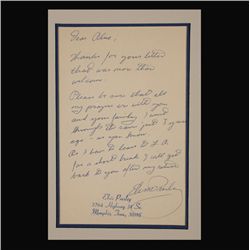 Dear Aline,
Thanks for your letter
that was more than
welcome.
Please be sure that all
my prayers are with you
and your family, I went
through the same just 3 years
ago - as you know.
As I have to leave to L.A.
for a short break I will get
back to you after my return
Elvis Presley
Elvis Presley
3764 Highway 51 So.
Memphis, Tenn. 38116